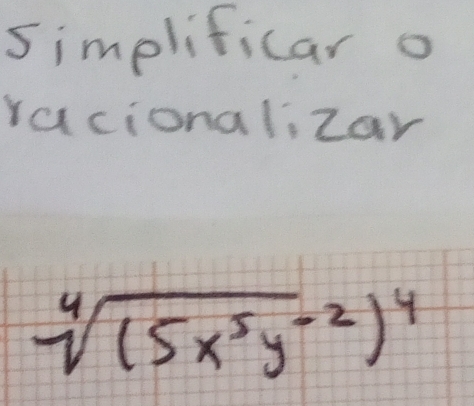 Simplificar o
racionalizar
⁴√(5x⁵y⁻²)⁴